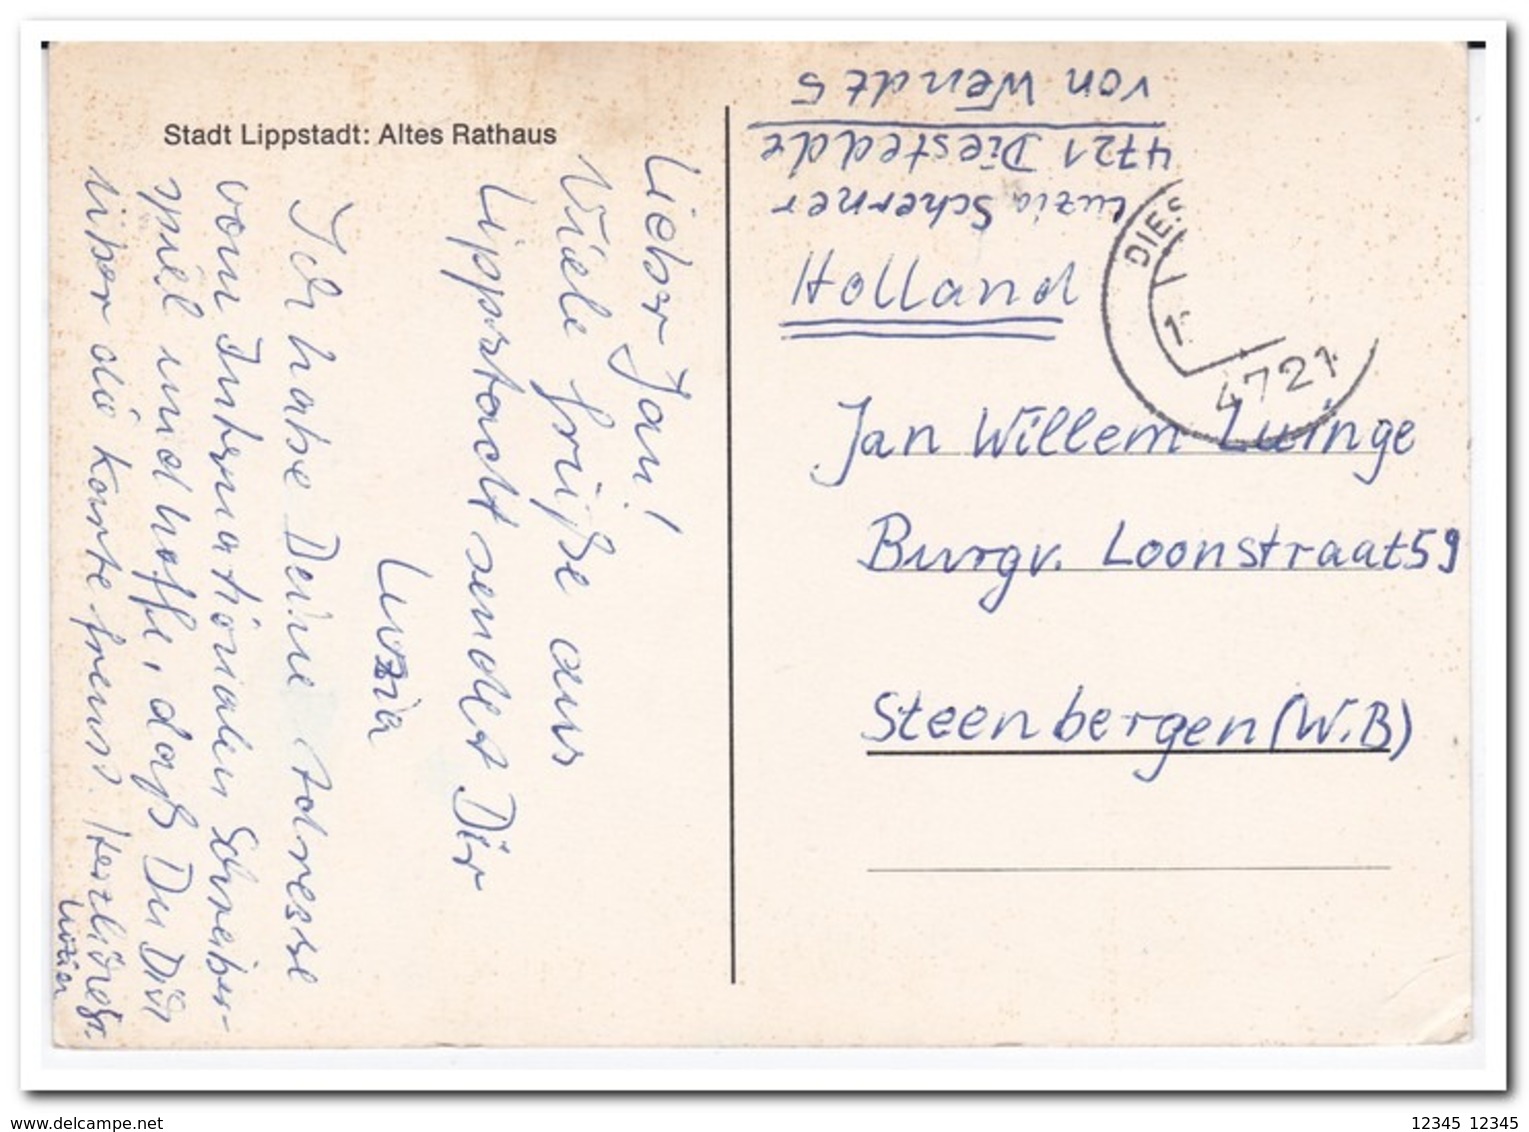 Stadt Lippstadt: Altes Rathaus
Lieber Jan!
Viele Grüße aus
Lippstadt sendet Dir
Luzia
Ich habe Deine Adresse
vom Internationalen Schreiber-
spiel und hoffe, daß Du Dich
über die Karte freust. Herzl. Grüße
Luzia
Luzia Scherner
4721 Diestedde
von Wendt 5
Holland
DIES
4721
Jan Willem Luinge
Burgv. Loonstraat 59
Steenbergen (W.B)
www.delcampe.net
12345 12345